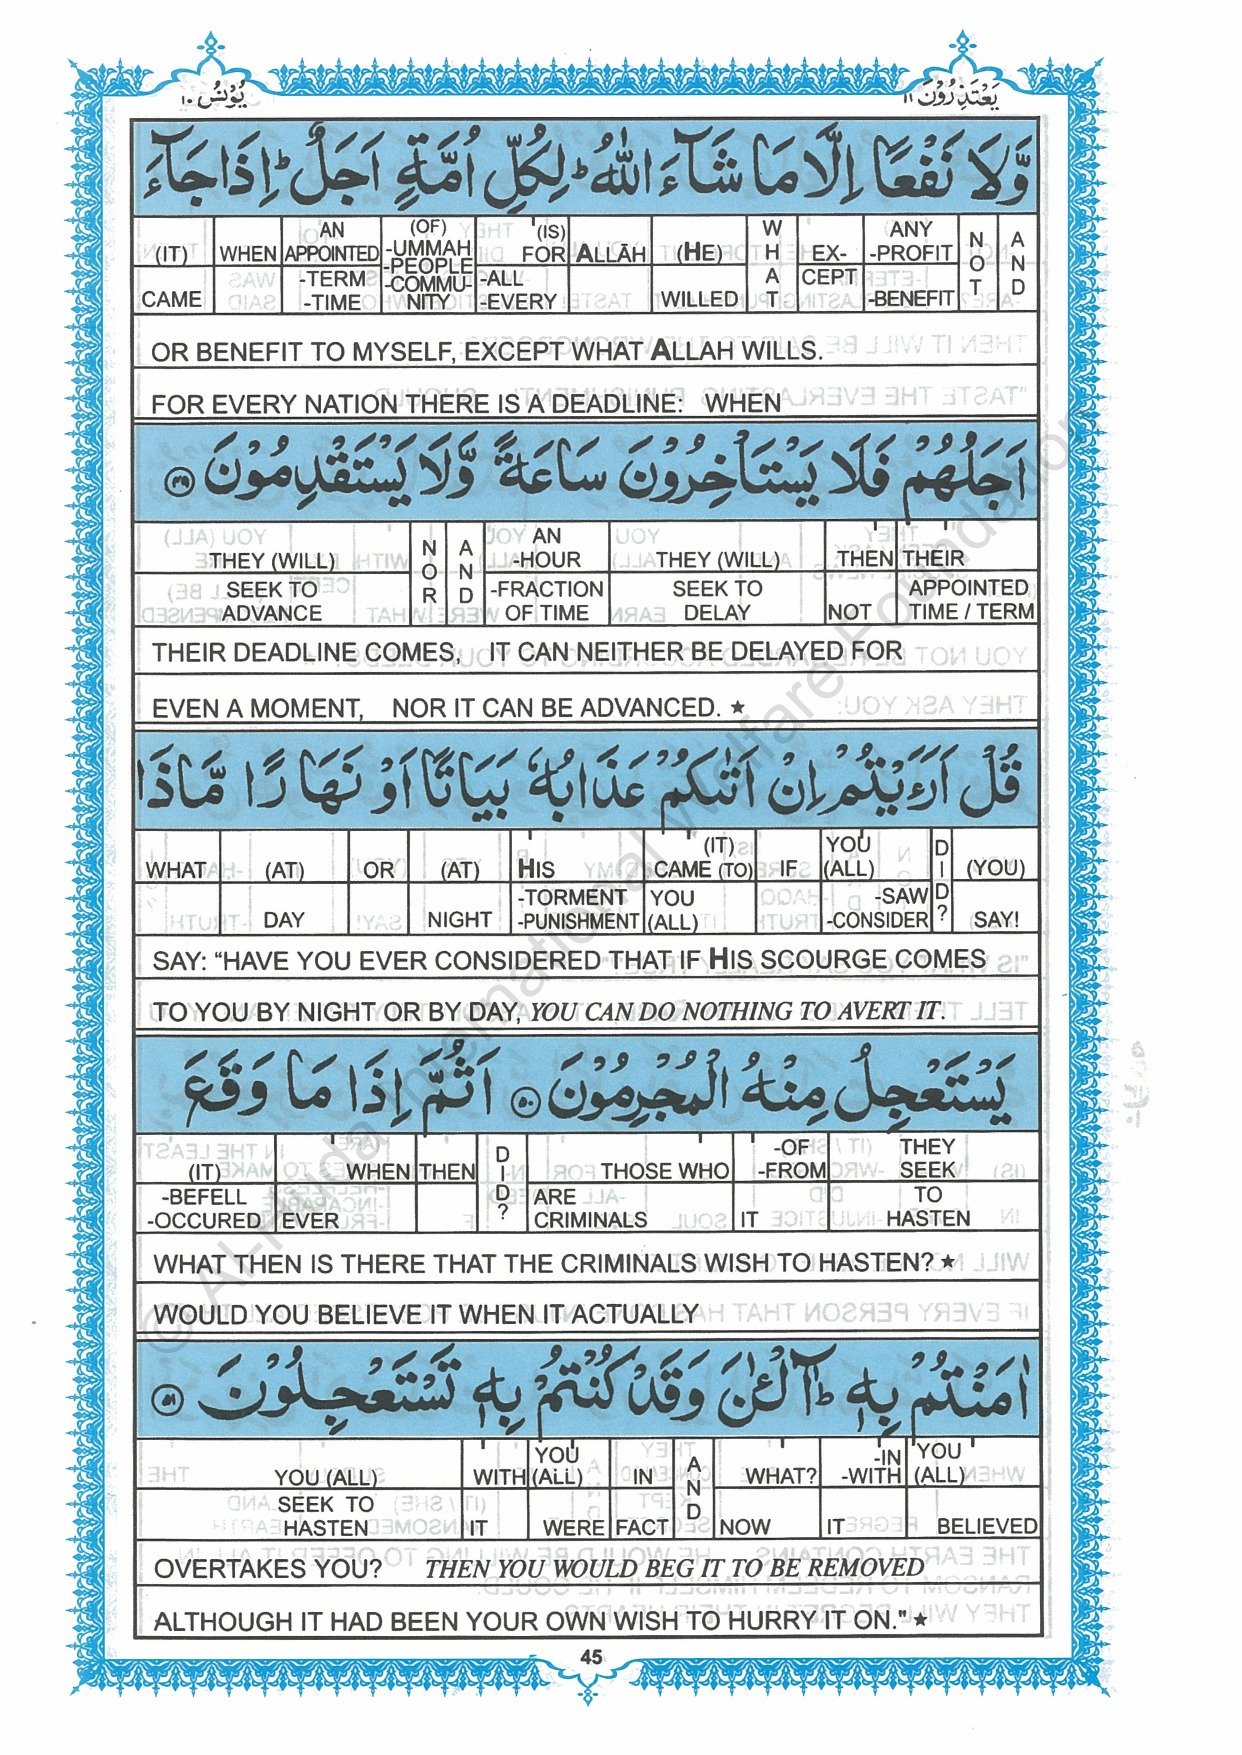 يَعْتَذِرُوْنَ ١١
يُوْنُسُ ١٠
وَّلَا نَفْعًا اِلَّا مَا شَآءَ اللّٰهُ ؕ لِكُلِّ اُمَّةٍ اَجَلٌ ؕ اِذَا جَآءَ
(IT) CAME | WHEN | AN APPOINTED -TERM -TIME | (OF) -UMMAH -PEOPLE -COMMU-NITY | (IS) FOR -ALL -EVERY | ALLĀH | (HE) WILLED | WHAT | EX-CEPT | ANY -PROFIT -BENEFIT | NOT | AND
OR BENEFIT TO MYSELF, EXCEPT WHAT ALLAH WILLS.
FOR EVERY NATION THERE IS A DEADLINE: WHEN
اَجَلُهُمْ فَلَا يَسْتَاْخِرُوْنَ سَاعَةً وَّلَا يَسْتَقْدِمُوْنَ ﴿۴۹﴾
THEY (WILL) SEEK TO ADVANCE | NOR | AND | AN -HOUR -FRACTION OF TIME | THEY (WILL) SEEK TO DELAY | THEN NOT | THEIR APPOINTED TIME / TERM
THEIR DEADLINE COMES, IT CAN NEITHER BE DELAYED FOR
EVEN A MOMENT, NOR IT CAN BE ADVANCED. ★
قُلْ اَرَءَيْتُمْ اِنْ اَتٰىكُمْ عَذَابُهٗ بَيَاتًا اَوْ نَهَارًا مَّاذَا
WHAT | (AT) DAY | OR | (AT) NIGHT | HIS -TORMENT -PUNISHMENT | (IT) CAME (TO) YOU (ALL) | IF | YOU (ALL) -SAW -CONSIDER | DID? | (YOU) SAY!
SAY: “HAVE YOU EVER CONSIDERED THAT IF HIS SCOURGE COMES
TO YOU BY NIGHT OR BY DAY, YOU CAN DO NOTHING TO AVERT IT.
يَسْتَعْجِلُ مِنْهُ الْمُجْرِمُوْنَ ﴿۵۰﴾ اَثُمَّ اِذَا مَا وَقَعَ
(IT) -BEFELL -OCCURED | WHEN EVER | THEN | DID? | THOSE WHO ARE CRIMINALS | -OF -FROM IT | THEY SEEK TO HASTEN
WHAT THEN IS THERE THAT THE CRIMINALS WISH TO HASTEN? ★
WOULD YOU BELIEVE IT WHEN IT ACTUALLY
اٰمَنْتُمْ بِهٖ ؕ آٰلْـٰٔنَ وَقَدْ كُنْتُمْ بِهٖ تَسْتَعْجِلُوْنَ ﴿۵۱﴾
YOU (ALL) SEEK TO HASTEN | WITH IT | YOU (ALL) WERE | IN FACT | AND | WHAT? NOW | -IN -WITH IT | YOU (ALL) BELIEVED
OVERTAKES YOU? THEN YOU WOULD BEG IT TO BE REMOVED
ALTHOUGH IT HAD BEEN YOUR OWN WISH TO HURRY IT ON." ★
45
© Al-Huda International Welfare Foundation